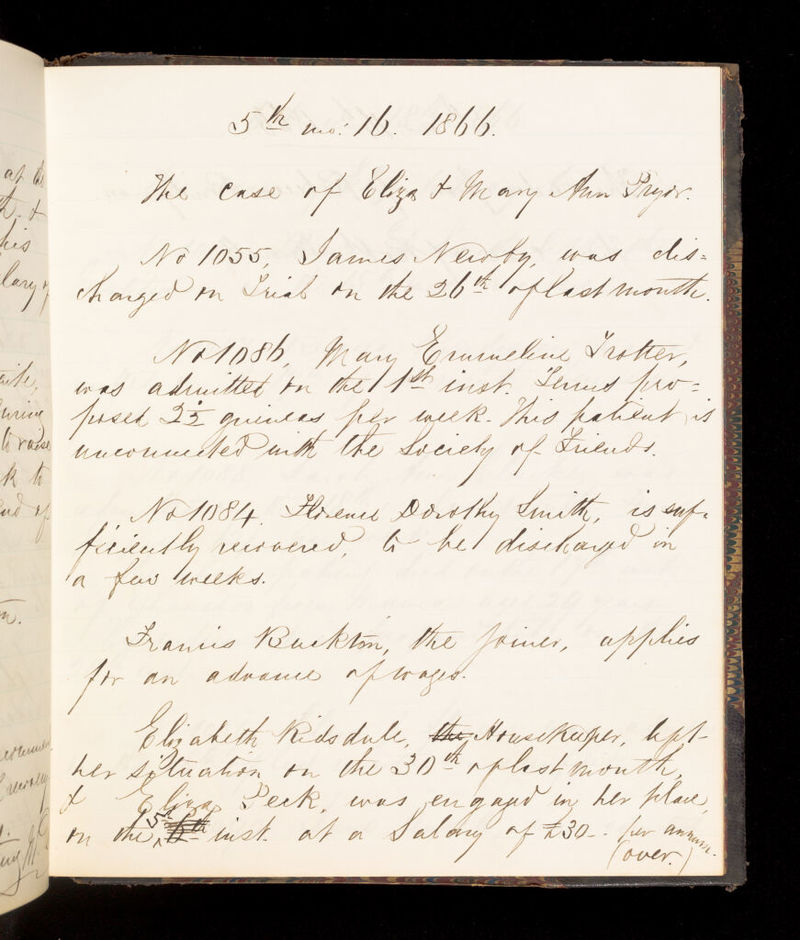 5th mo: 16. 1866.
The case of Eliza & Mary Ann Pryor.
No 1055, James Newby, was dis=
charged on Trial on the 26th of last month.
No 1086, Mary Emmeline Trotter,
was admitted on the 1st inst. Terms pro=
posed 2½ guineas per week. This patient is
unconnected with the Society of Friends.
No 1084. Florence Dorothy Smith, is suf-
ficiently recovered, to be discharged in
a few weeks.
Francis Buckton, the Joiner, applies
for an advance of wages.
Elizabeth Ridsdale, the Housekeeper, left
her situation on the 30th of last month,
& Eliza Peck, was engaged in her place,
on the 5th 6th inst. at a Salary of £30-. per annum.
(over.)